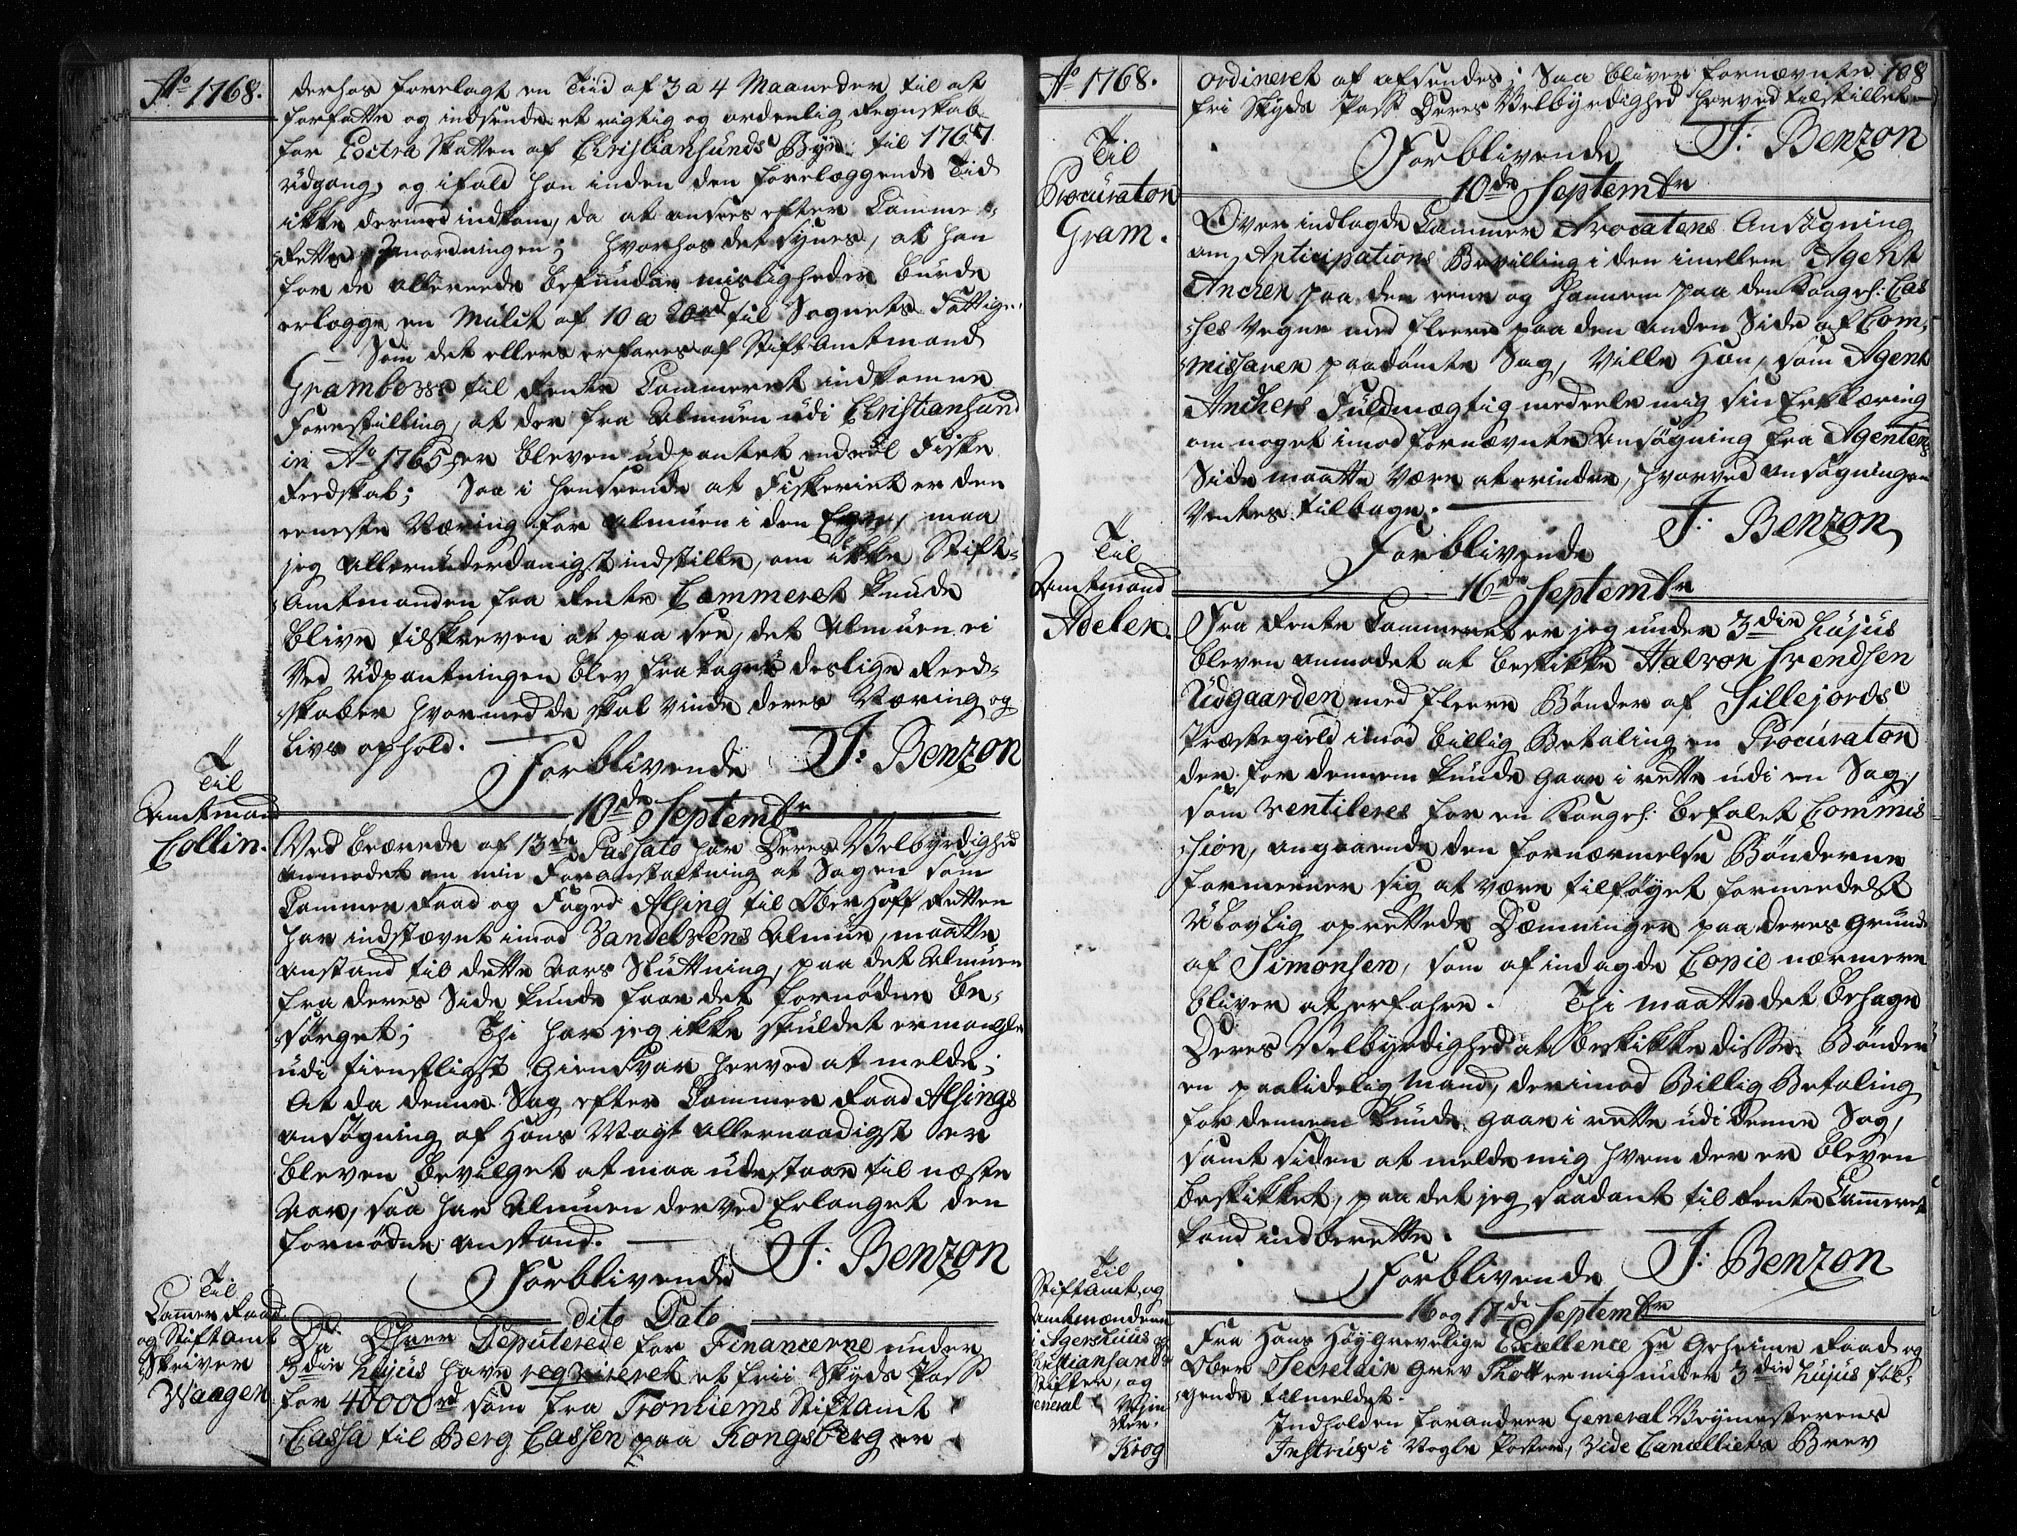 Aº 1768.
derhos forelagt en Tiid af 3 a 4 Maaneder, til at
forfatte og indsende et rigtig og ordenlig Regnskab
for Extra Skatten af Christiansunds Bye til 1767
udgang, og ifald han inden den forelæggende Tid
ikke dermed indkom, da at ansees efter Camme-
Rettes Anordningen; hvorhos det synes, at han
for de allereede befundne misligheder burde
erlægge en Mulct af 10 a 20rd til Sognets Fattige.
Som det ellers erfares af Stift Amtmand
Grambows til Rente Cammeret indkomne
Forestilling, at der fra Almuen udi Christiansund
in Aº 1765 er bleven udpantet endeel Fiske
Reedskab; Saa i henseende at Fiskeriet er den
eeneste Næring for Almuen i den Egn, maa
jeg allerunderdanigst indstille, om ikke Stift-
Amtmanden fra Rente Cammeret kunde
blive tilskreven at paa see, det Almuen ei
ved udpantningen blev fratagne deslige Reed-
skaber hvormed de skal vinde deres Næring og
Livs ophold.
Forblivende J: Benzon
Til
Amtmand
Collin.
10de Septembr
Ved beærede af 13de Passato har Deres Velbyrdighed
anmodet om min Foranstaltning at Sagen som
Cammer Raad og Foged Alsing til Ober Hoff Retten
har indstævnt imod Vandelvens Almue, maatte
anstand til dette Aars Slutning, paa det Almuen
fra deres Side kunde faae det fornødne be-
sørget; Thi har jeg ikke skuldet ermangle
udi tienstligst Giensvar herved at melde;
At da denne Sag efter Cammer Raad Alsings
ansøgning af Hans Mayt allernaadigst er
bleven bevilget at maa udestaae til næste
Aar, saa har Almuen derved Erlanget den
fornødne anstand.
Forblivende J: Benzon
Til
Camer Raad
og Stift Amt
Skriver
Waagen
dito Dato
Da Dhrer Deputerede for Financerne under
3die hujus have reqvireret et frii Skyds Pass
for 40000rd som fra Tronhiems Stift Amt
Cassa til Berg Cassen paa Kongsberg er
Aº 1768.
108
ordineret at afsendes; Saa bliver fornævnte
fri Skyds Pass Deres Velbyrdighed herved tilstillet.
Forblivende J: Benzon
Til
Procurator
Gram.
10de Septembr
Over indlagde Cammer Advocatens Ansøgning
om Anticipations Bevilling i den imellem Agent
Ancher paa den eene og Hannem paa den Kongel: Cas
ses Vegne med fleere paa den anden Side af Com-
missairer paadømte Sag, ville Han, som Agent
Anchers Fuldmægtig meddele mig sin Erklæring
om noget imod fornævnte Ansøgning fra Agentens
Side maatte være at erindre, hvorved ansøgningen
ventes tilbage.
Forblivende J: Benzon
Til
Amtmand
Adeler.
16de Septembr
Fra Rente Cammeret er jeg under 3die hujus
bleven anmodet at beskikke Halvor Svendsen
Udgaarden med fleere Bønder af Sillejords
Præstegield imod billig Betaling en Procurator
der for dennem kunde gaae i rette udi en Sag,
som ventileres for en Kongel: befalet Commis
sion, angaaende den fornærmelse Bønderne
formeener sig at være tilføyet formedelst
ulovlig oprettede Dæmninger paa deres grund
af Simonsen, som af indlagde Copie nærmere
bliver at erfahre. Thi maatte det behage
Deres Velbyrdighed at beskikke disse Bønder
en paalidelig Mand, der imod Billig Betaling
for dennem kunde gaae i rette udi denne Sag,
samt siden at melde mig hvem der er bleven
beskikket, paa det jeg saadant til Rente Cammeret
kand indberette.
Forblivende J: Benzon
Til
Stiftamt, og
Amtmændene
i Agershuus og
Christiansands
Stifter, og
General Vejme
ster.
Krog
16 og 17de Septembr
Fra Hans Høy Grevelige Excellence Hr Geheime Raad og
Ober Secretair Grev Thott er mig under 3die hujus føl-
gende tilmeldet.
Indholden forandrer General Veymesterens
Instrux i Nogle Poster, Vide Cancelliets Brev